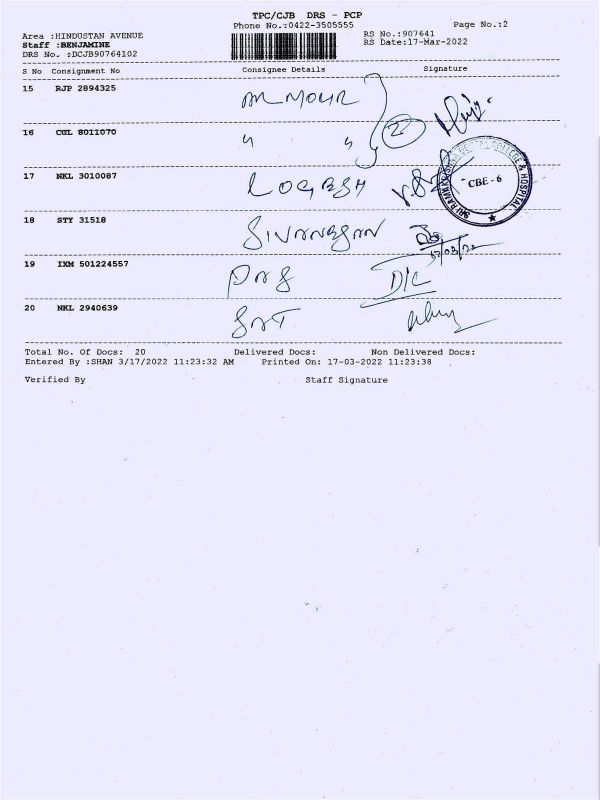 TPC/CJB DRS - PCP
Phone No.:0422-3505555 Page No.:2
Area :HINDUSTAN AVENUE RS No.:907641
Staff :BENJAMINE RS Date:17-Mar-2022
DRS No. :DCJB90764102
S No Consignment No Consignee Details Signature
15 RJP 2894325
16 CGL 8011070 " " 2
17 NKL 3010087 LOGESH
CBE - 6
18 STY 31518 SIVANESAN
17/03/22
19 IXM 501224557 D/C
20 NKL 2940639
Total No. Of Docs: 20 Delivered Docs: Non Delivered Docs:
Entered By :SHAN 3/17/2022 11:23:32 AM Printed On: 17-03-2022 11:23:38
Verified By Staff Signature